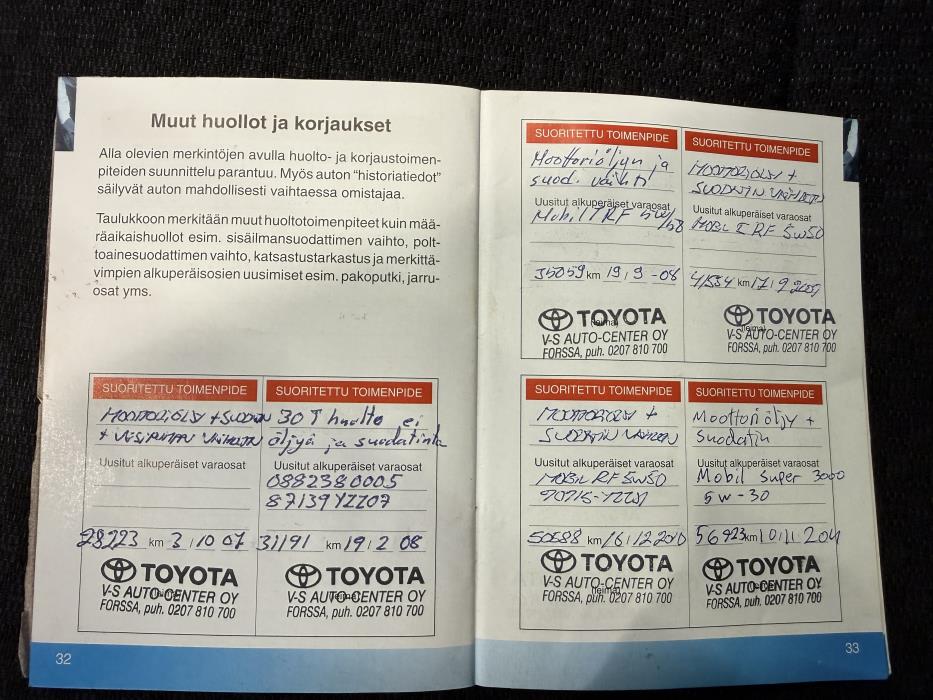 Muut huollot ja korjaukset
Alla olevien merkintöjen avulla huolto- ja korjaustoimen-
piteiden suunnittelu parantuu. Myös auton "historiatiedot"
säilyvät auton mahdollisesti vaihtaessa omistajaa.
Taulukkoon merkitään muut huoltotoimenpiteet kuin mää-
räaikaishuollot esim. sisäilmansuodattimen vaihto, polt-
toainesuodattimen vaihto, katsastustarkastus ja merkittä-
vimpien alkuperäisosien uusimiset esim. pakoputki, jarru-
osat yms.
SUORITETTU TOIMENPIDE
MOOTTORIÖLJY + SUODATIN
Uusitut alkuperäiset varaosat
28223 km 3 / 10 07
TOYOTA
V-S AUTO-CENTER OY
FORSSA, puh. 0207 810 700
SUORITETTU TOIMENPIDE
30 T huolto ei
öljyä ja suodatinta
Uusitut alkuperäiset varaosat
0882380005
87139YZZ07
31191 km 19 / 2 08
TOYOTA
V-S AUTO-CENTER OY
FORSSA, puh. 0207 810 700
32
SUORITETTU TOIMENPIDE
Moottoriöljyn ja
suod. vaihto
Uusitut alkuperäiset varaosat
Mobil 1 RF 5w/50
35059 km 19 / 9 -08
TOYOTA
V-S AUTO-CENTER OY
FORSSA, puh. 0207 810 700
SUORITETTU TOIMENPIDE
MOOTTORIÖLJY +
SUODATIN VAIHDETTU
Uusitut alkuperäiset varaosat
MOBIL 1 RF 5W50
km 17 / 9 2009
TOYOTA
V-S AUTO-CENTER OY
FORSSA, puh. 0207 810 700
SUORITETTU TOIMENPIDE
MOOTTORIÖLJY +
SUODATIN
Uusitut alkuperäiset varaosat
MOBIL RF 5W50
km 16 / 12 2010
TOYOTA
V-S AUTO-CENTER OY
FORSSA, puh. 0207 810 700
SUORITETTU TOIMENPIDE
Moottoriöljy +
Suodatin
Uusitut alkuperäiset varaosat
Mobil Super 3000
5w-30
56923 km
TOYOTA
V-S AUTO-CENTER OY
FORSSA, puh. 0207 810 700
33